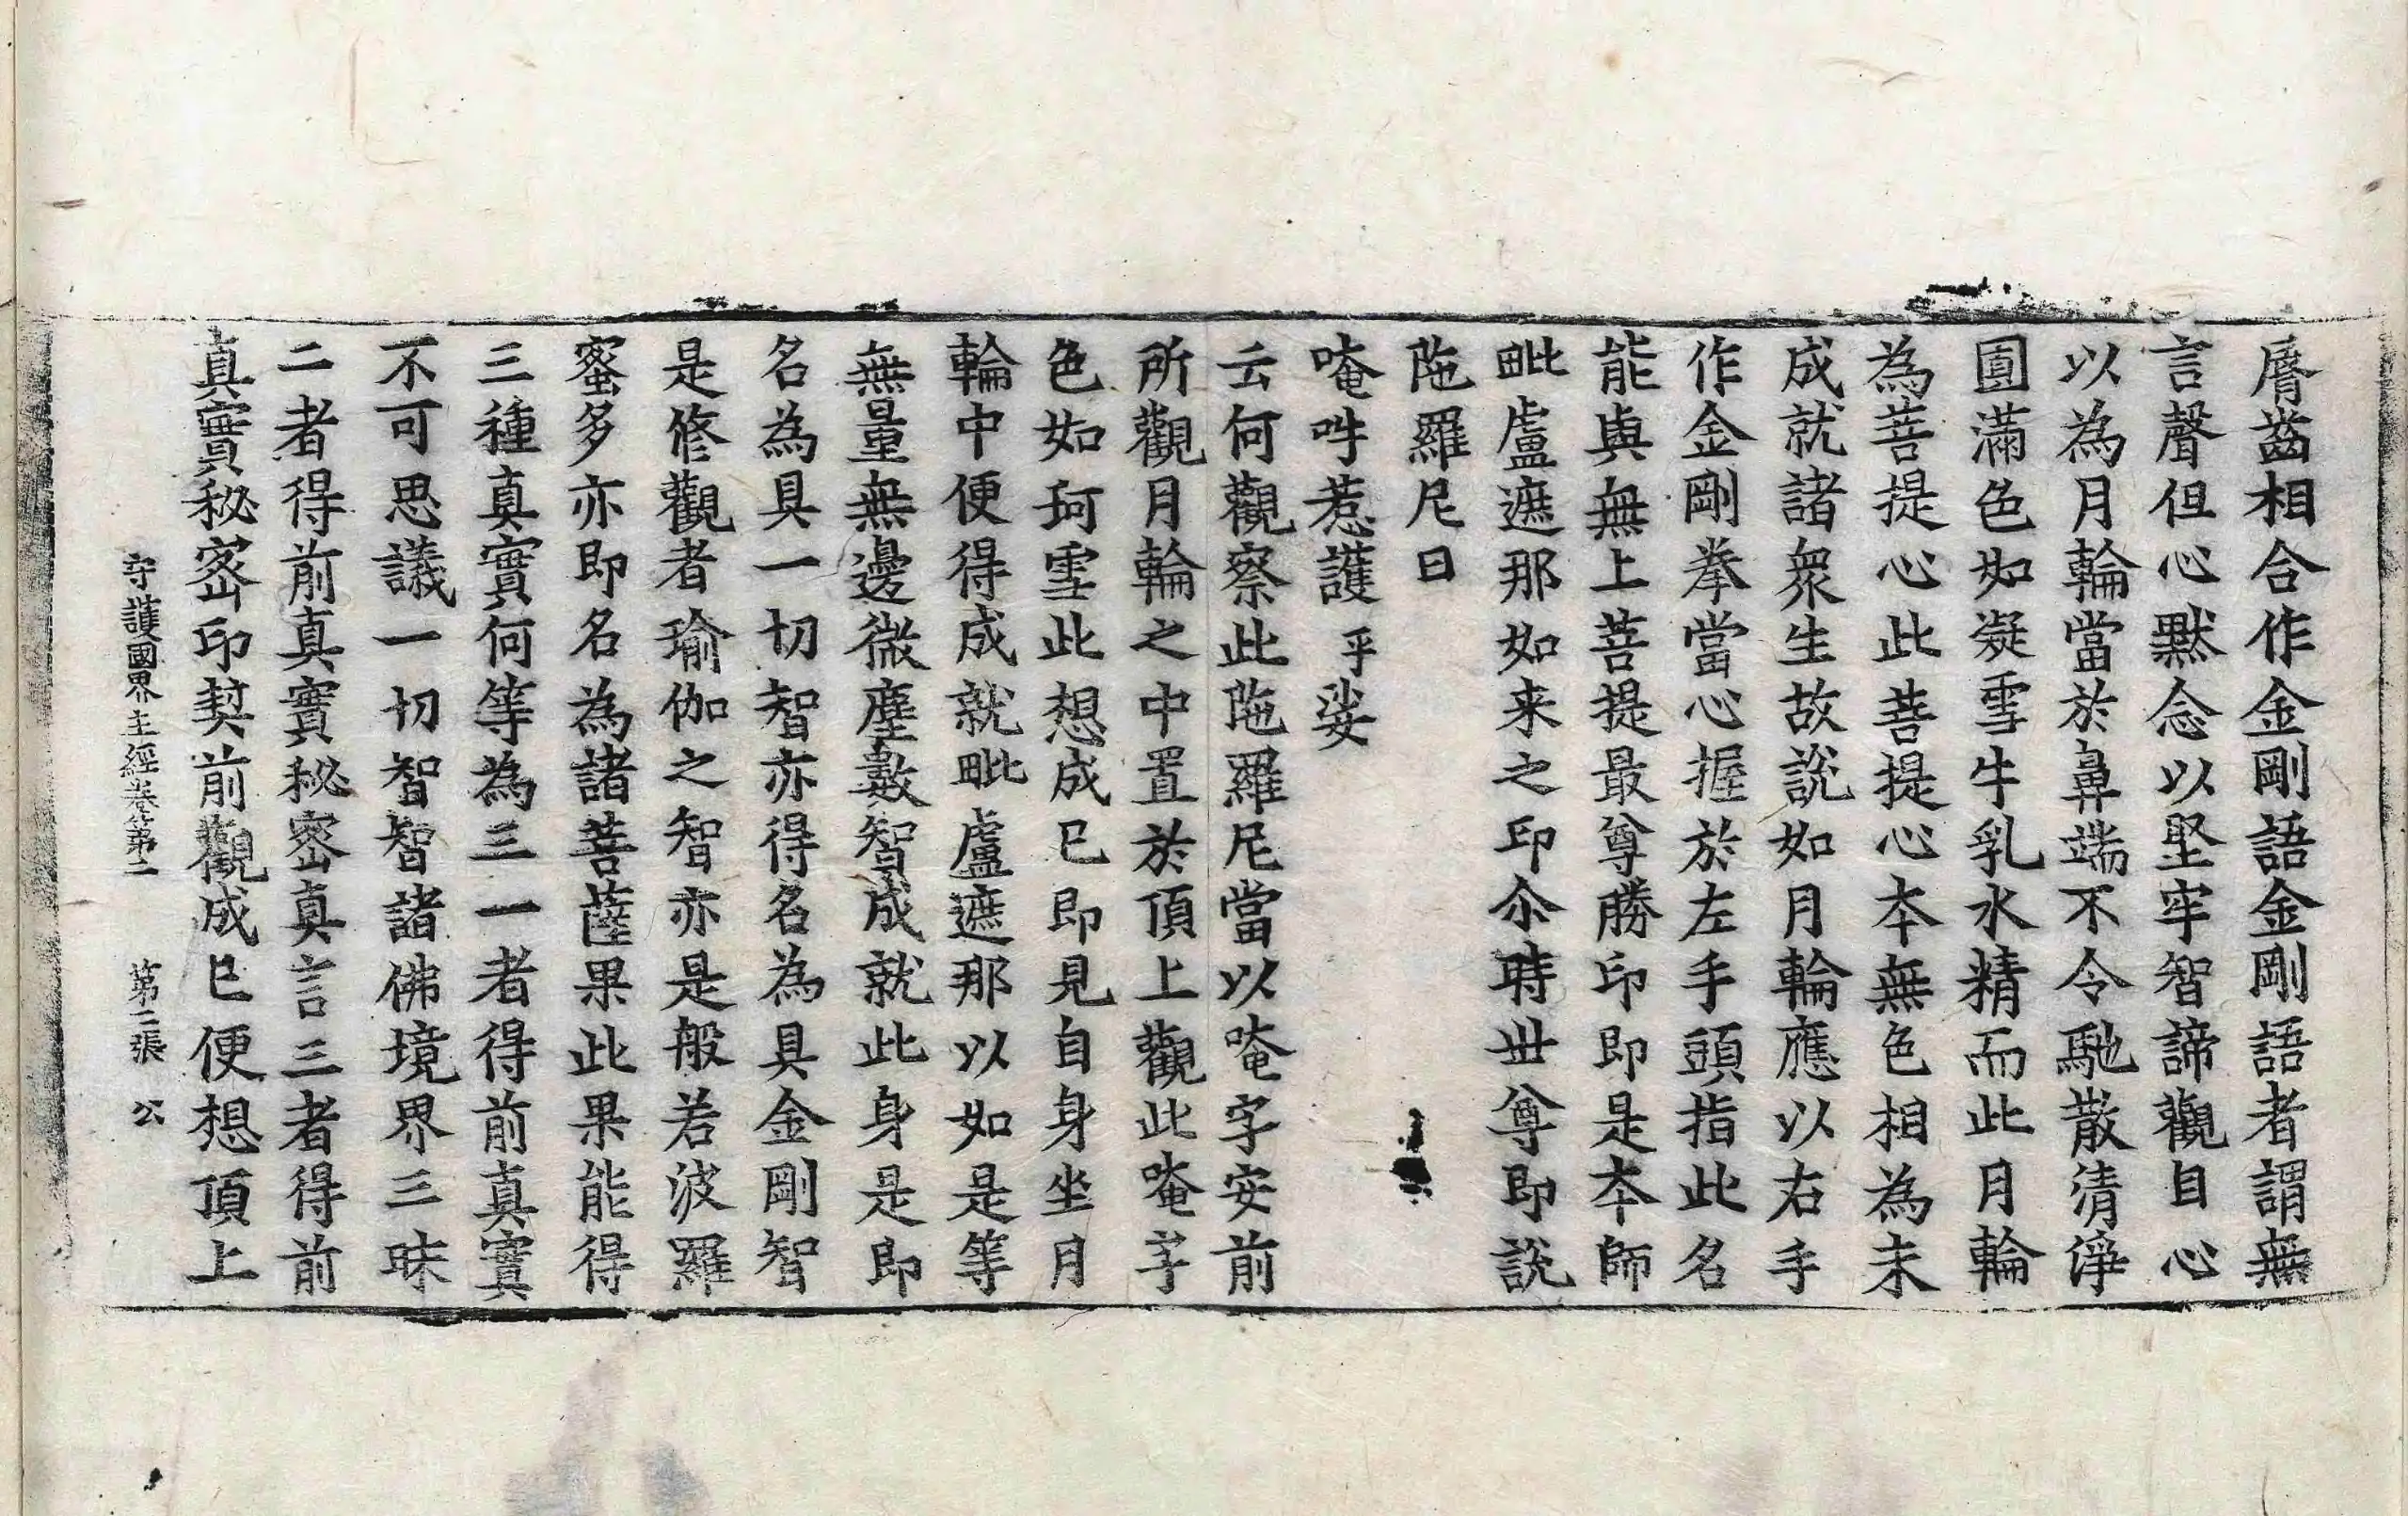 脣齒相合作金剛語金剛語者謂無
言聲但心默念以堅牢智諦觀自心
以為月輪當於鼻端不令馳散清淨
圓滿色如凝雪牛乳水精而此月輪
為菩提心此菩提心本無色相為未
成就諸衆生故說如月輪應以右手
作金剛拳當心握於左手頭指此名
能與無上菩提最尊勝印即是本師
毗盧遮那如来之印尒時世尊即說
陁羅尼曰
唵吽惹護乎娑
云何觀察此陁羅尼當以唵字安前
所觀月輪之中置於頂上觀此唵字
色如珂雪此想成已即見自身坐月
輪中便得成就毗盧遮那以如是等
無量無邊微塵數智成就此身是即
名為具一切智亦得名為具金剛智
是修觀者瑜伽之智亦是般若波羅
蜜多亦即名為諸菩薩果此果能得
三種真實何等為三一者得前真實
不可思議一切智智諸佛境界三昧
二者得前真實秘密真言三者得前
真實秘密印契前觀成已便想頂上
守護國界主經卷第二 第二張 公